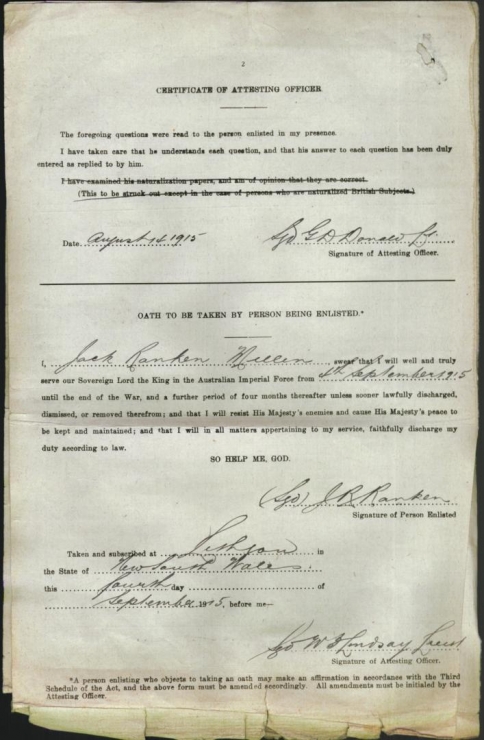 2
CERTIFICATE OF ATTESTING OFFICER
The foregoing questions were read to the person enlisted in my presence.
I have taken care that he understands each question, and that his answer to each question has been duly
entered as replied to by him.
I have examined his naturalization papers, and am of opinion that they are correct.
(This to be struck out except in the case of persons who are naturalized British Subjects.)
Date August 14 1915
Signature of Attesting Officer.
OATH TO BE TAKEN BY PERSON BEING ENLISTED.*
I, Jack Ranken, swear that I will well and truly
serve our Sovereign Lord the King in the Australian Imperial Force from 4th September 1915
until the end of the War, and a further period of four months thereafter unless sooner lawfully discharged,
dismissed, or removed therefrom; and that I will resist His Majesty's enemies and cause His Majesty's peace to
be kept and maintained; and that I will in all matters appertaining to my service, faithfully discharge my
duty according to law.
SO HELP ME, GOD.
(Sgd) J R Ranken
Signature of Person Enlisted
Taken and subscribed at in
the State of New South Wales
this fourth day of
September 1915, before me—
Sgd W Lindsay Lieut
Signature of Attesting Officer.
*A person enlisting who objects to taking an oath may make an affirmation in accordance with the Third
Schedule of the Act, and the above form must be amended accordingly. All amendments must be initialed by the
Attesting Officer.